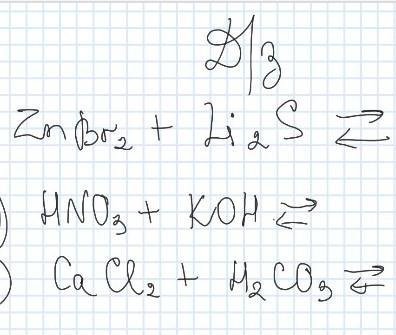 Д/з
ZnBr₂ + Li₂S ⇄
) HNO₃ + KOH ⇄
) CaCl₂ + H₂CO₃ ⇄